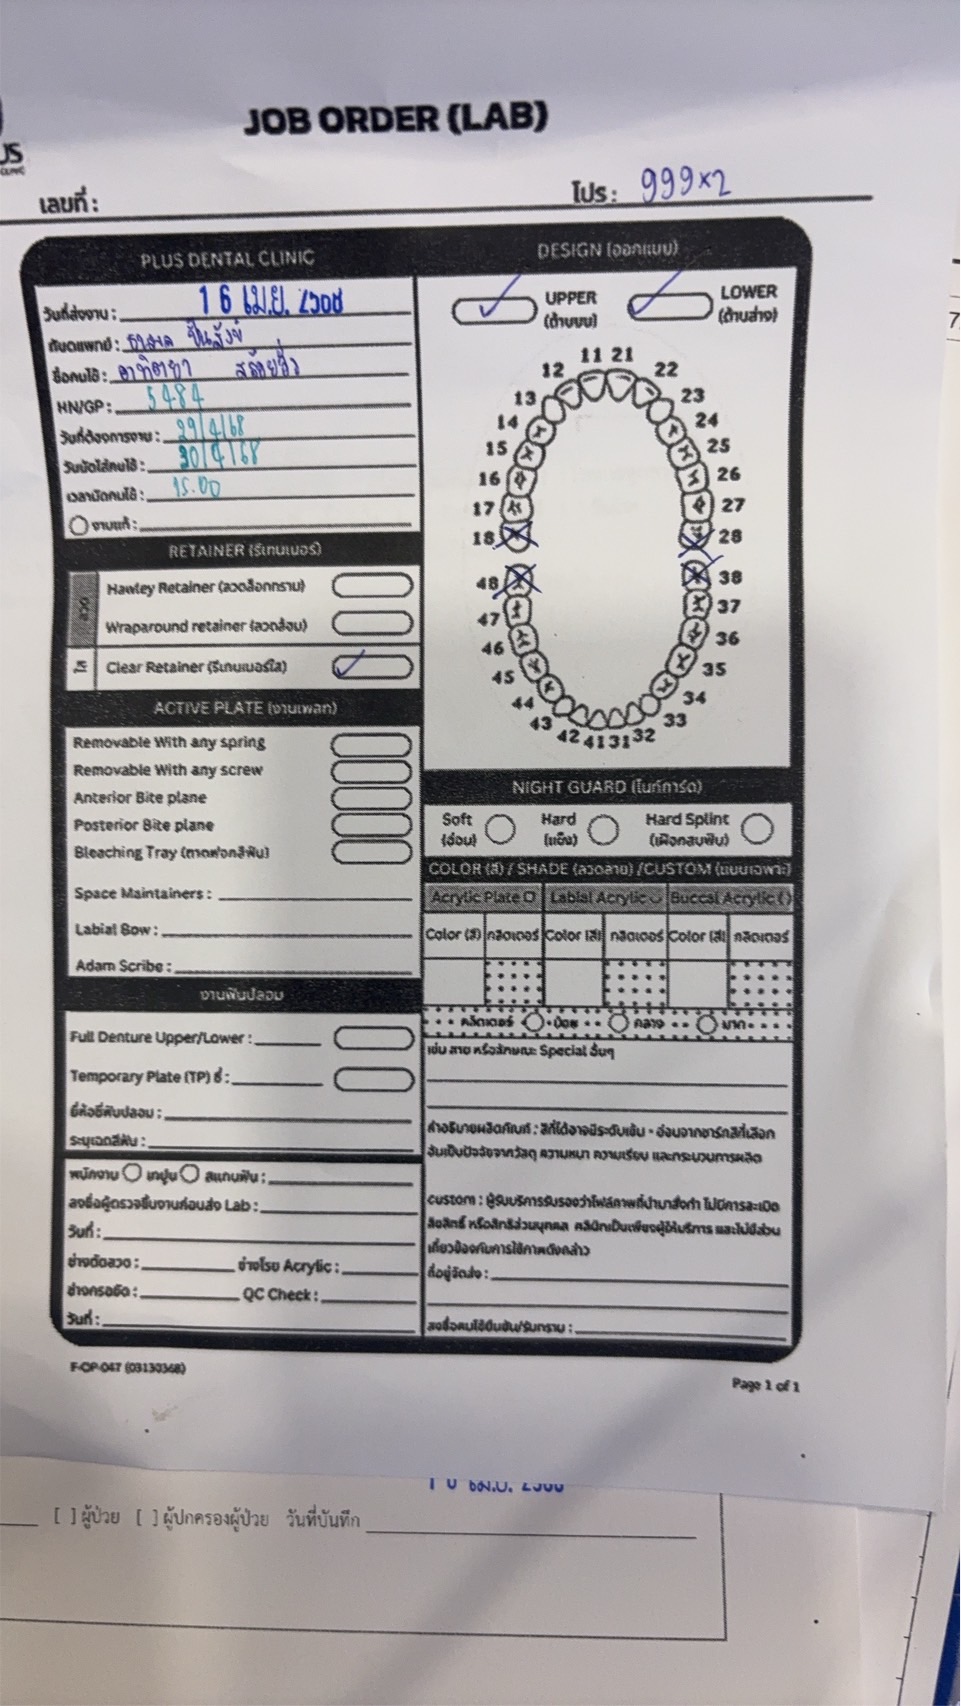 JOB ORDER (LAB)
US
CLINIC
เลขที่ :
โปร : 999×2
PLUS DENTAL CLINIC
วันที่ส่งงาน : 16 เม.ย. 2568
ทันตแพทย์ :
ชื่อคนไข้ : อาทิตยา
HN/GP : 5484
วันที่ต้องการงาน : 29/4/68
วันนัดใส่คนไข้ : 30/4/68
เวลานัดคนไข้ : 15.00
งานแก้ :
RETAINER (รีเทนเนอร์)
ลวด
Hawley Retainer (ลวดล็อกกราม)
Wraparound retainer (ลวดล้อม)
ใส
Clear Retainer (รีเทนเนอร์ใส)
ACTIVE PLATE (งานเพลท)
Removable With any spring
Removable With any screw
Anterior Bite plane
Posterior Bite plane
Bleaching Tray (ถาดฟอกสีฟัน)
Space Maintainers :
Labial Bow :
Adam Scribe :
งานฟันปลอม
Full Denture Upper/Lower :
Temporary Plate (TP) ซี่ :
ยี่ห้อซี่ฟันปลอม :
ระบุเฉดสีฟัน :
พนักงาน เทปูน สแกนฟัน :
ลงชื่อผู้ตรวจชิ้นงานก่อนส่ง Lab :
วันที่ :
ช่างดัดลวด : ช่างโรย Acrylic :
ช่างกรอขัด : QC Check :
วันที่ :
DESIGN (ออกแบบ)
UPPER (ด้านบน)
LOWER (ด้านล่าง)
11 21
12 22
13 23
14 24
15 25
16 26
17 27
18 28
48 38
47 37
46 36
45 35
44 34
43 33
42 41 31 32
NIGHT GUARD (ไนท์การ์ด)
Soft (อ่อน)
Hard (แข็ง)
Hard Splint (เฝือกสบฟัน)
COLOR (สี) / SHADE (ลวดลาย) /CUSTOM (แบบเฉพาะ)
Acrylic Plate Labial Acrylic Buccal Acrylic
Color (สี) กลิตเตอร์ Color (สี) กลิตเตอร์ Color (สี) กลิตเตอร์
กลิตเตอร์ น้อย กลาง มาก
เช่น ลาย หรือลักษณะ Special อื่นๆ
คำอธิบายผลิตภัณฑ์ : สีที่ได้อาจมีระดับเข้ม - อ่อนจากชาร์ทสีที่เลือก
อันเป็นปัจจัยจากวัสดุ ความหนา ความเรียบ และกระบวนการผลิต
custom : ผู้รับบริการรับรองว่าไฟล์ภาพที่นำมาสั่งทำ ไม่มีการละเมิด
ลิขสิทธิ์ หรือสิทธิส่วนบุคคล คลินิกเป็นเพียงผู้ให้บริการ และไม่มีส่วน
เกี่ยวข้องกับการใช้ภาพดังกล่าว
ที่อยู่จัดส่ง :
ลงชื่อคนไข้ยืนยัน/รับทราบ :
F-OP-047 (03130368)
Page 1 of 1
[ ] ผู้ป่วย [ ] ผู้ปกครองผู้ป่วย วันที่บันทึก
7